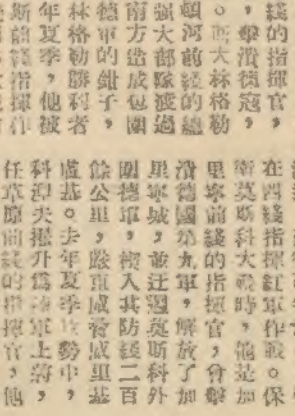 綫的指揮官，
，擊潰德寇，
。斯大林格勒
頓河前綫的總
强大部隊渡過
南方造成包圍
德軍的鉗子，
林格勒勝利者
年夏季，他被
斯前綫指揮作
在西綫指揮紅軍作戰。保
衛莫斯科大戰時，他是加
里寧前綫的指揮官，曾擊
潰德國第九軍，解放了加
里寧城，並迂迴莫斯科外
圍德軍，楔入其防綫二百
餘公里，嚴重威脅威里基
盧基。去年夏季攻勢中，
科涅夫擢升爲陸軍上將，
任草原前綫的指揮官，他